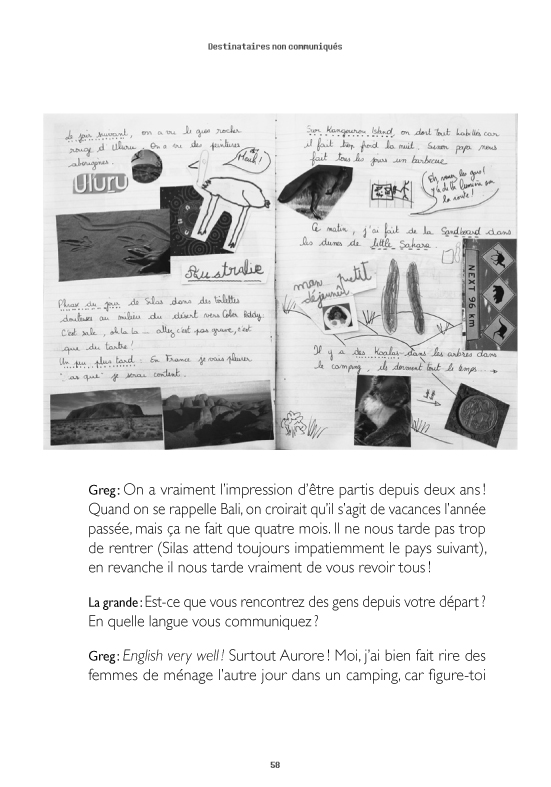 Destinataires non communiqués
Le jour suivant, on a vu le gros rocher
rouge d'Uluru. On a vu des peintures
aborigènes.
Uluru
Australie
Phrase du jour de Silas dans des toilettes
douteuses au milieu du désert vers Cober Peddy:
C'est sale, oh la la ... allez c'est pas grave, c'est
que du tartre!
Un peu plus tard: En France je vais pleurer
je serai content.
Sur Kangourou Island, on dort tout habillés car
il fait trop froid la nuit. Sinon papa nous
fait tous les jours un barbecue
Ce matin, j'ai fait de la Sandboard dans
les dunes de little Sahara.
mon petit
déjeuner
NEXT 96 km
Il y a des Koalas dans les arbres dans
le camping, ils dorment tout le temps →
Greg : On a vraiment l'impression d'être partis depuis deux ans !
Quand on se rappelle Bali, on croirait qu'il s'agit de vacances l'année
passée, mais ça ne fait que quatre mois. Il ne nous tarde pas trop
de rentrer (Silas attend toujours impatiemment le pays suivant),
en revanche il nous tarde vraiment de vous revoir tous !
La grande : Est-ce que vous rencontrez des gens depuis votre départ ?
En quelle langue vous communiquez ?
Greg : English very well ! Surtout Aurore ! Moi, j'ai bien fait rire des
femmes de ménage l'autre jour dans un camping, car figure-toi
58